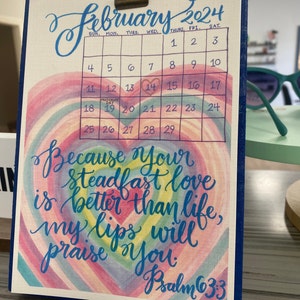 February 2024
SUN. MON. TUES. WED. THURS. FRI. SAT.
1 2 3
4 5 6 7 8 9 10
11 12 13 14 15 16 17
18 19 20 21 22 23 24
25 26 27 28 29
Because Your
steadfast love
is better than life,
my lips will
praise You.
Psalm 63:3